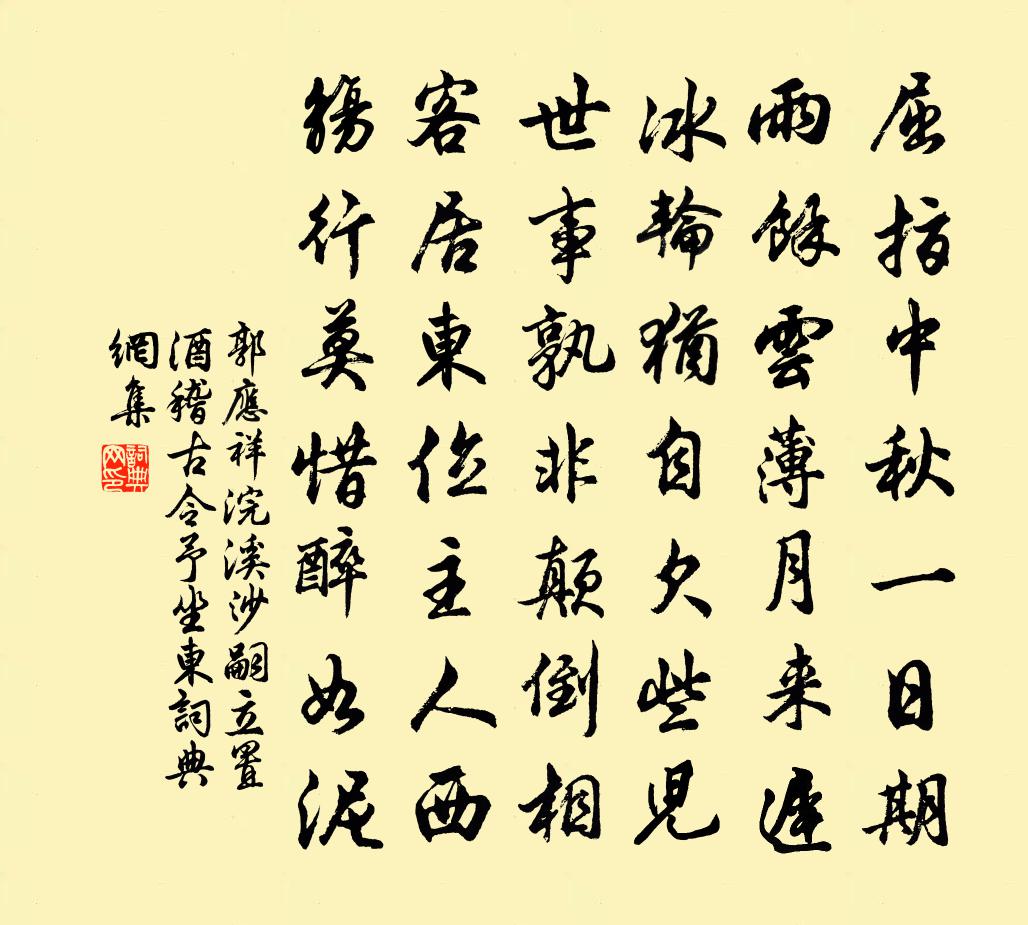 屈指中秋一日期
雨餘雲薄月来遲
冰輪猶自欠些兒
世事孰非顛倒相
客居東位主人西
觴行莫惜醉如泥
郭應祥浣溪沙嗣立置
酒稽古令予坐東詞典
網集
詞典网印